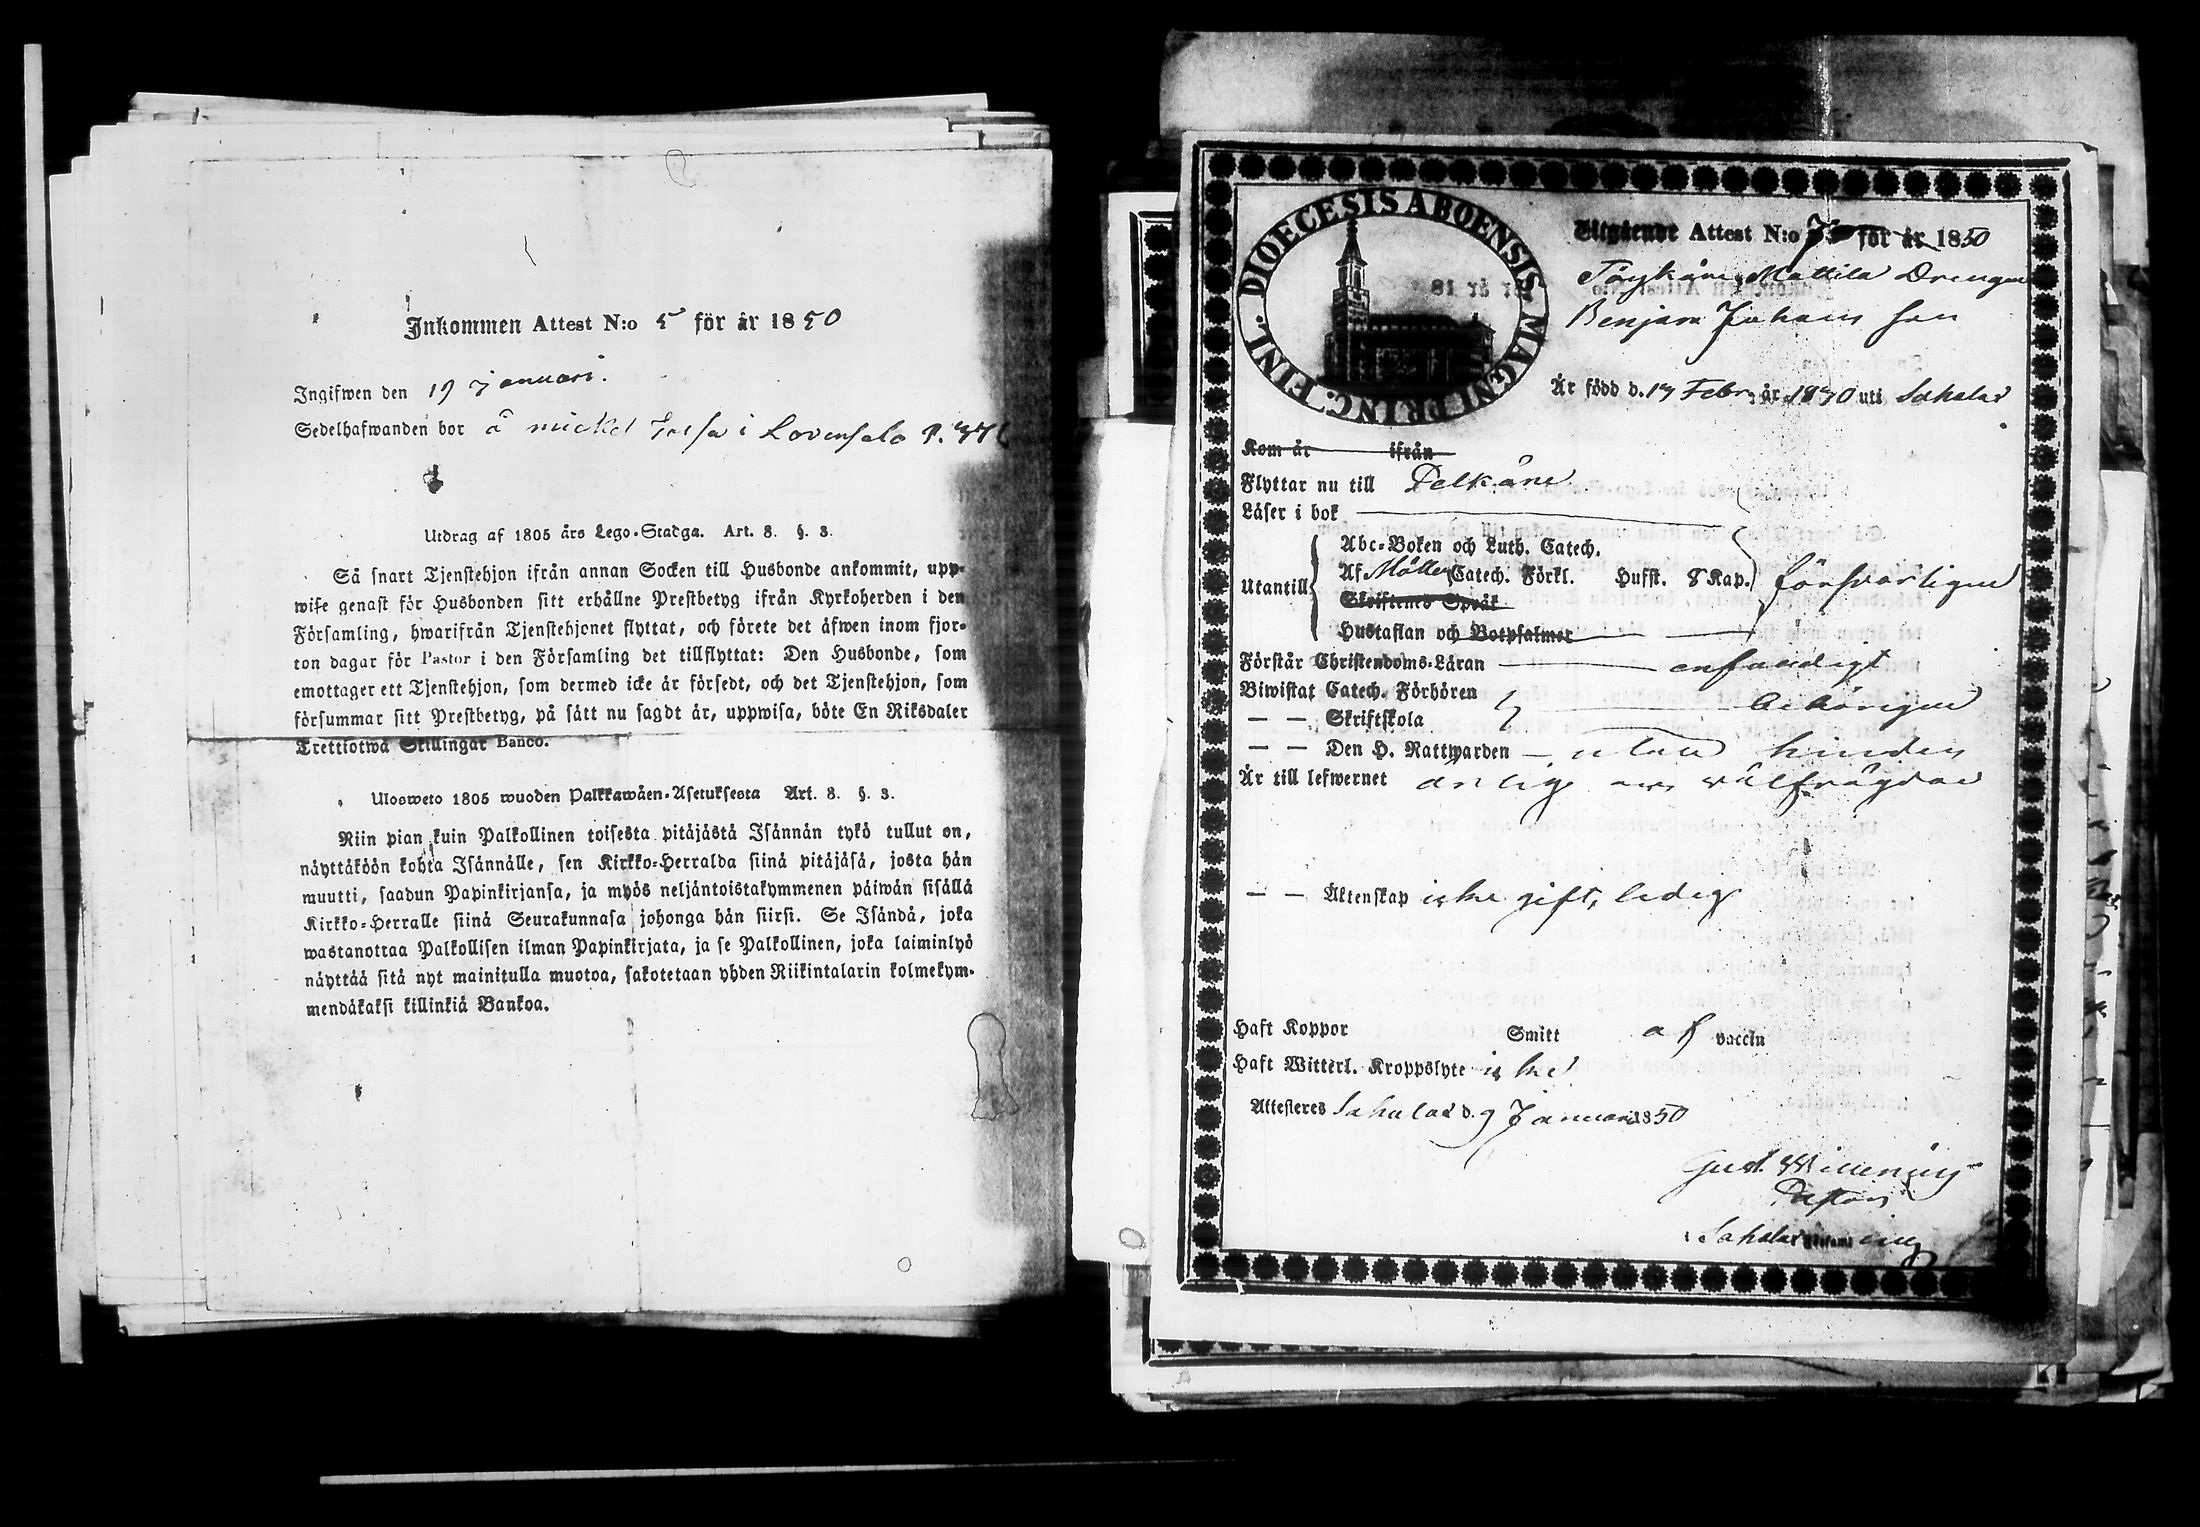 Inkommen Attest N:o 5 för år 1850
Ingifwen den 19 Januari.
Sedelhafwanden bor å mickel i
Utdrag af 1805 års Lego-Stadga. Art. 8. §. 3.
Så snart Tjenstehjon ifrån annan Socken till Husbonde ankommit, upp-
wise genast för Husbonden sitt erhållne Prestbetyg ifrån Kyrkoherden i den
Församling, hwarifrån Tjenstehjonet flyttat, och förete det äfwen inom fjor-
ton dagar för Pastor i den Församling det tillflyttat: Den Husbonde, som
emottager ett Tjenstehjon, som dermed icke är försedt, och det Tjenstehjon, som
försummar sitt Prestbetyg, på sätt nu sagdt är, uppwisa, böte En Riksdaler
Trettiotwå Skillingar Banco.
Ulosweto 1805 wuoden Palkkawäen-Asetuksesta Art. 8. §. 3.
Niin pian kuin Palkollinen toisesta pitäjästä Isännän tykö tullut on,
näyttäköön kohta Isännälle, sen Kirkko-Herralda siinä pitäjäsä, josta hän
muutti, saadun Papinkirjansa, ja myös neljäntoistakymmenen päiwän sisällä
Kirkko-Herralle siinä Seurakunnasa johonga hän siirsi. Se Isändä, joka
wastanottaa Palkollisen ilman Papinkirjata, ja se Palkollinen, joka laiminlyö
näyttää sitä nyt mainitulla muotoa, sakotetaan yhden Riikintalarin kolmekym-
mendäkaksi killinkiä Bankoa.
DIOECESIS ABOENSIS MAGNI PRINC. FINL.
Utgående Attest N:o för år 1850
Mattila Drengen
Benjam Johans son
Är född d. 17 Febr. år 1830 uti Sahalax
Kom år ifrån
Flyttar nu till Pelkäne
Läser i bok
Utantill
Abc-Boken och Luth. Catech.
Af Möllers Catech. Förkl. Hufst. 8 Kap. försvarligen
Skriftenes Språk
Hustaflan och Botpsalmer
Förstår Christendoms-Läran enfaldigt
Biwistat Catech. Förhören behörigen
— — Skriftskola
— — Den H. Nattwarden utan hinder
Är till lefwernet ärlig och välfrägdad
— — Äktenskap icke gift, ledig
Haft Koppor Smitt af vaccin
Haft Witterl. Kroppslyte icke
Attesteres Sahalax d. 9 Januari 1850
Gust.
Pastor
i Sahalax Församling